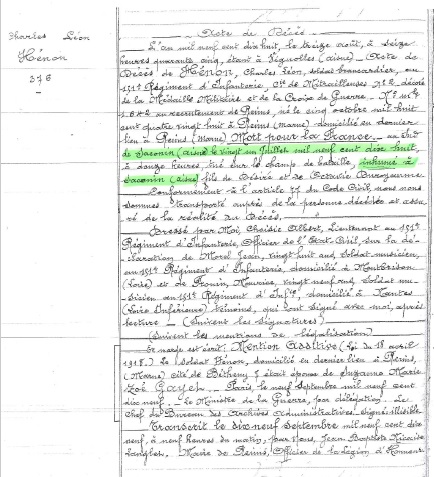 Charles Léon
Hénon
376
Acte de Décès
L'an mil neuf cent dix huit, le treize août, à seize
heures quarante cinq, étant à Vignolles (Aisne) - Acte de
Décès de HÉNON, Charles Léon, soldat brancardier, au
151e Régiment d'Infanterie, Cie de Mitrailleuses No 2, décoré
de la Médaille Militaire et de la Croix de Guerre - No Mle
au recrutement de Reims, né le cinq octobre mil huit
cent quatre vingt huit à Reims (Marne) domicilié en dernier
lieu à Reims (Marne) Mort pour la France - au
de Saconin (Aisne) le vingt un Juillet mil neuf cent dix huit,
à douze heures, tué sur le champ de bataille, inhumé à
Saconin (Aisne) fils de Désiré et de Octavie
Conformément à l'article 77 du Code Civil, nous nous
sommes transporté auprès de la personne décédée et assu
ré de la réalité du Décès.
Dressé par Moi, Albert, Lieutenant au 151e
Régiment d'Infanterie, Officier de l'Etat-Civil, sur la dé
claration de Morel Jean, vingt huit ans, Soldat musicien,
au 151e Régiment d'Infanterie, domicilié à Montbrison
(Loire) et de Maurice, vingt neuf ans, soldat mu
sicien au 151e Régiment d'Inf., domicilié à Nantes
(Loire Inférieure) témoins, qui ont signé avec moi, après
lecture - (Suivent les signatures)
(Suivent les mentions de légalisation)
En marge est écrit: Mention Additive (Loi du 18 avril
1918.) Le Soldat Hénon, domicilié en dernier lieu à Reims,
(Marne) cité de Bétheny était époux de Suzanne Marie
Zoé - Paris, le neuf Septembre mil neuf cent
dix neuf - Le Ministre de la Guerre, par délégation. Le
Chef du Bureau des Archives Administratives. Signé: illisible
Transcrit le dix neuf septembre mil neuf cent dix
neuf, à neuf heures du matin, par Nous, Jean Baptiste Nicaise
Langlet, Maire de Reims, Officier de la Légion d'Honneur